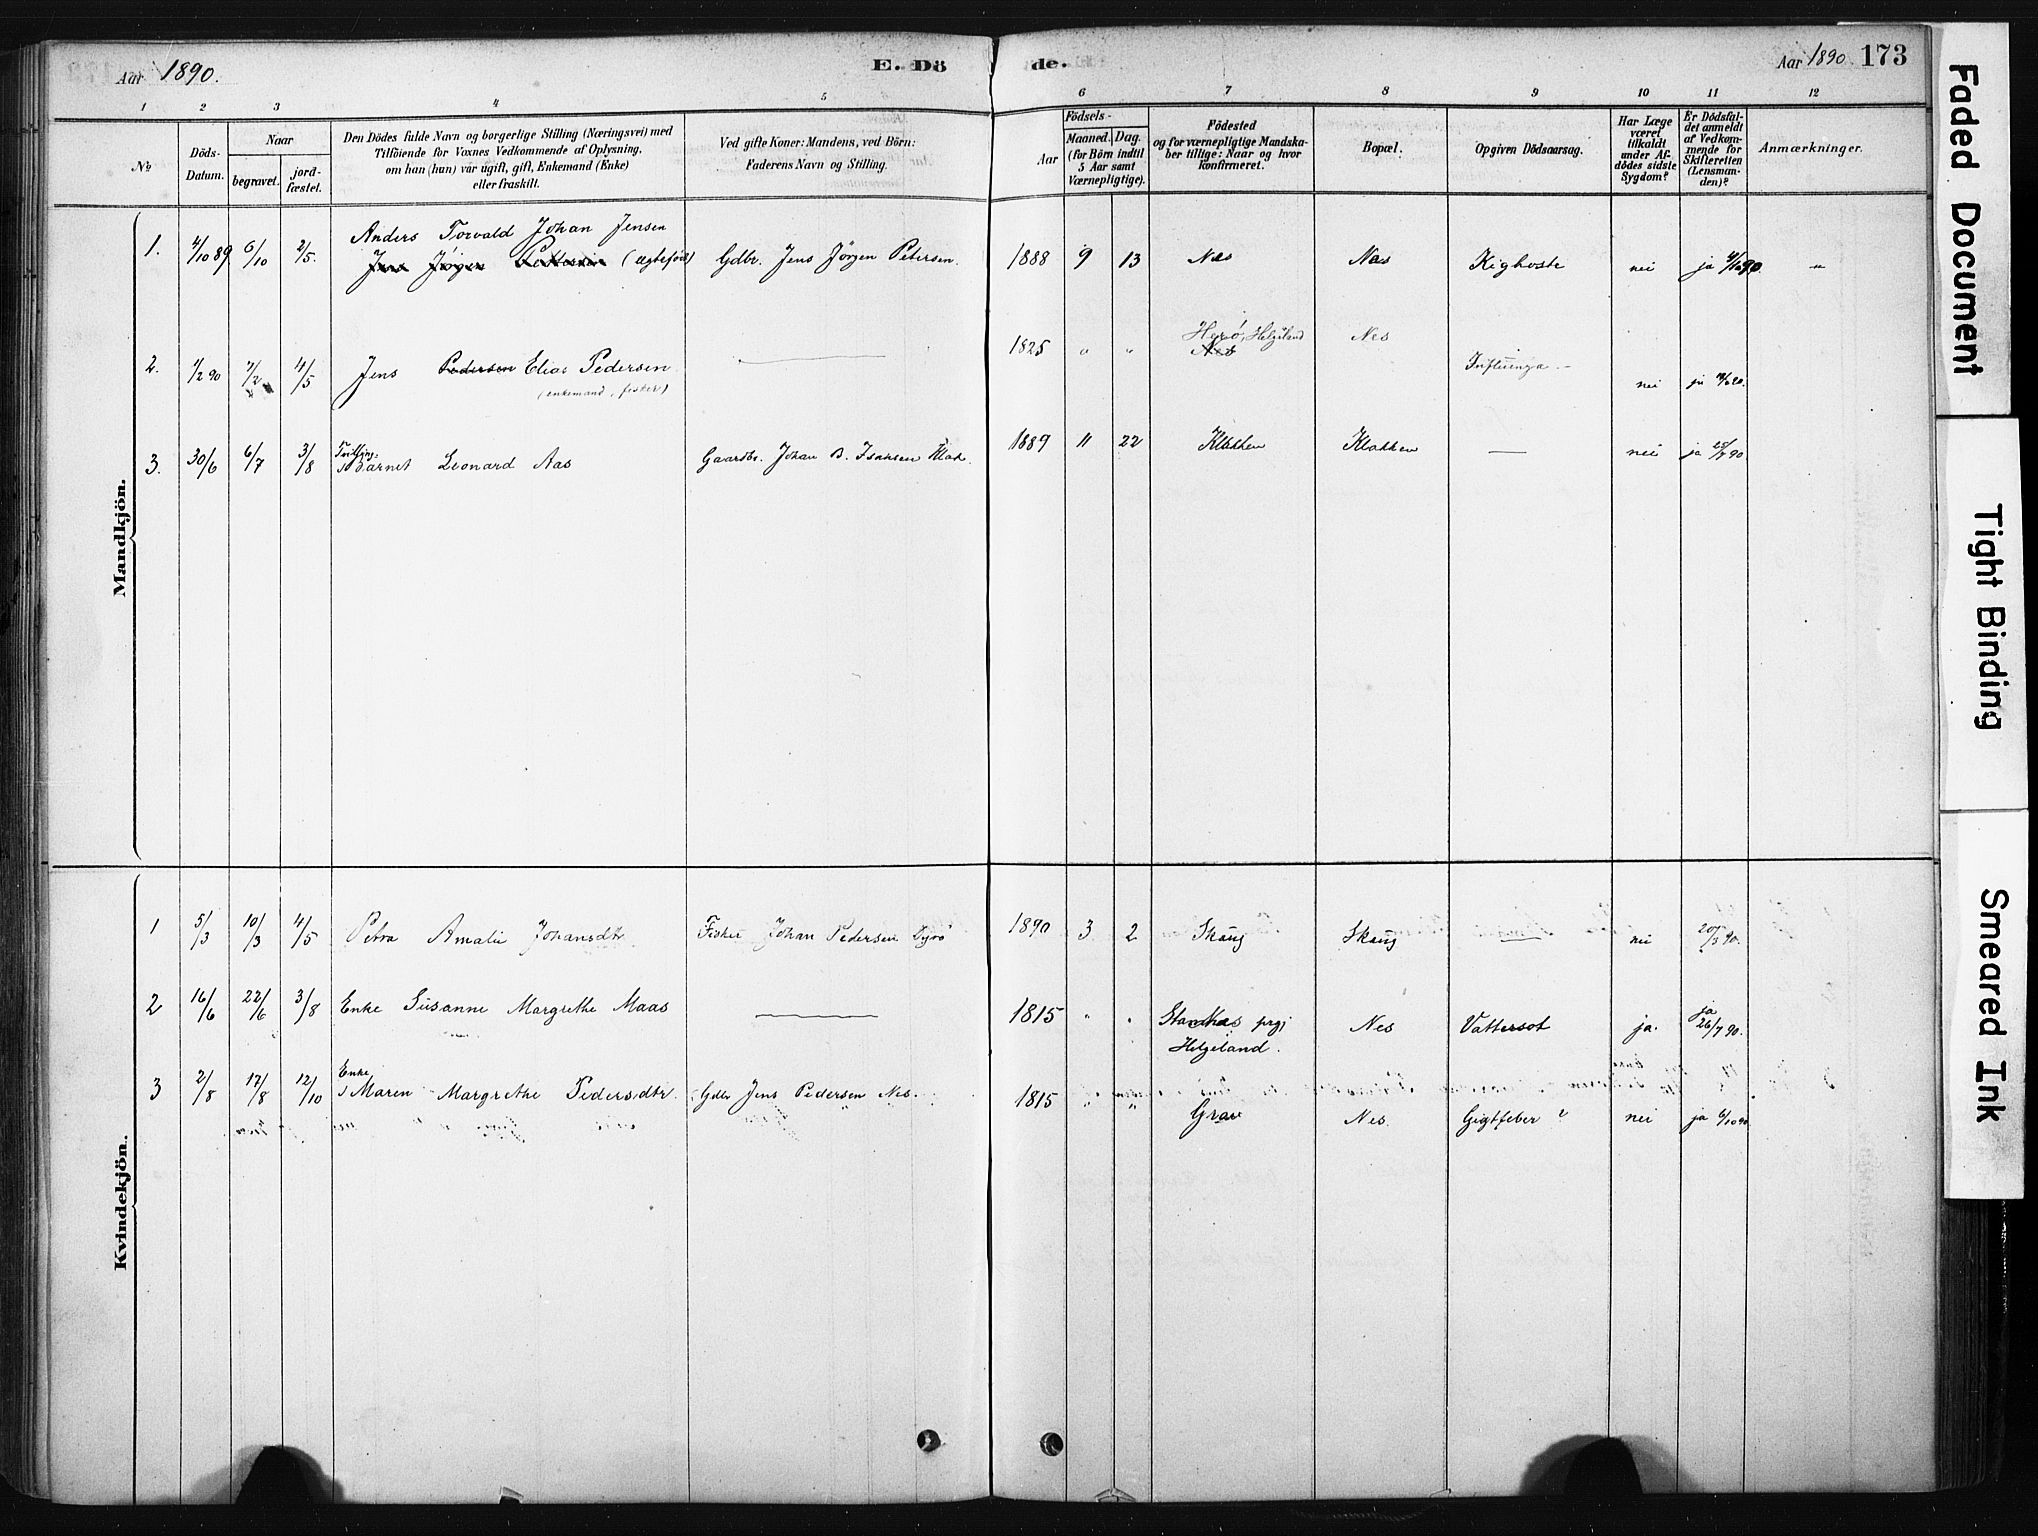 Aar 1890.
E. Döde.
Aar 1890. 173
1 2 3 4 5 6 7 8 9 10 11 12
No
Döds-Datum.
Naar
begravet.
jord-fæstet.
Den Dödes fulde Navn og borgerlige Stilling (Næringsvei) med
Tilföiende for Voxnes Vedkommende af Oplysning,
om han (hun) var ugift, gift, Enkemand (Enke)
eller fraskilt.
Ved gifte Koner: Mandens, ved Börn:
Faderens Navn og Stilling.
Födsels-
Aar
Maaned. Dag.
(for Börn indtil
5 Aar samt
Værnepligtige).
Födested
og for værnepligtige Mandska-
ber tillige: Naar og hvor
konfirmeret.
Bopæl.
Opgiven Dödsaarsag.
Har Læge
været
tilkaldt
under Af-
dödes sidste
Sygdom?
Er Dödsfal-
det anmeldt
af Vedkom-
mende for
Skifteretten
(Lensman-
den)?
Anmærkninger.
Mandkjön.
Anders Torvald Johan Jensen
1. 4/10 89 6/10 2/5. Jens Jörgen Pettersen (ægtefød) Gdbr. Jens Jörgen Petersen. 1888 9 13 Nes Nes Kighoste nei ja 90. "
Herö, Helgeland
2. 1/2 90 7/2 4/5 Jens Pedersen Elias Pedersen 1825 " " Nes Nes Influenza nei ja
(enkemand, fisker)
Tvilling:
3. 30/6 6/7 3/8 Barnet Leonard Aas Gaardbr. Johan B. Isaksen Klak. 1889 11 22 Klakken Klakken — nei ja 25/7 90
Kvindekjön.
1 5/3 10/3 4/5 Petra Amalie Johansdtr Fisker Johan Pedersen Dyrö 1890 3 2 Skaug Skaug — nei 20/3 90.
2 16/6 22/6 3/8 Enke Susanne Margrethe Maas 1815 " " Stamnes prgj Nes Vattersot ja. ja 26/7 90.
Helgeland.
Enke
3 2/8 17/8 12/10 Maren Margrethe Pedersdtr. Gdbr Jens Pedersen Nes. 1815 " " Grav Nes. Gigtfeber ? nei ja 6/10 90
Faded Document
Tight Binding
Smeared Ink